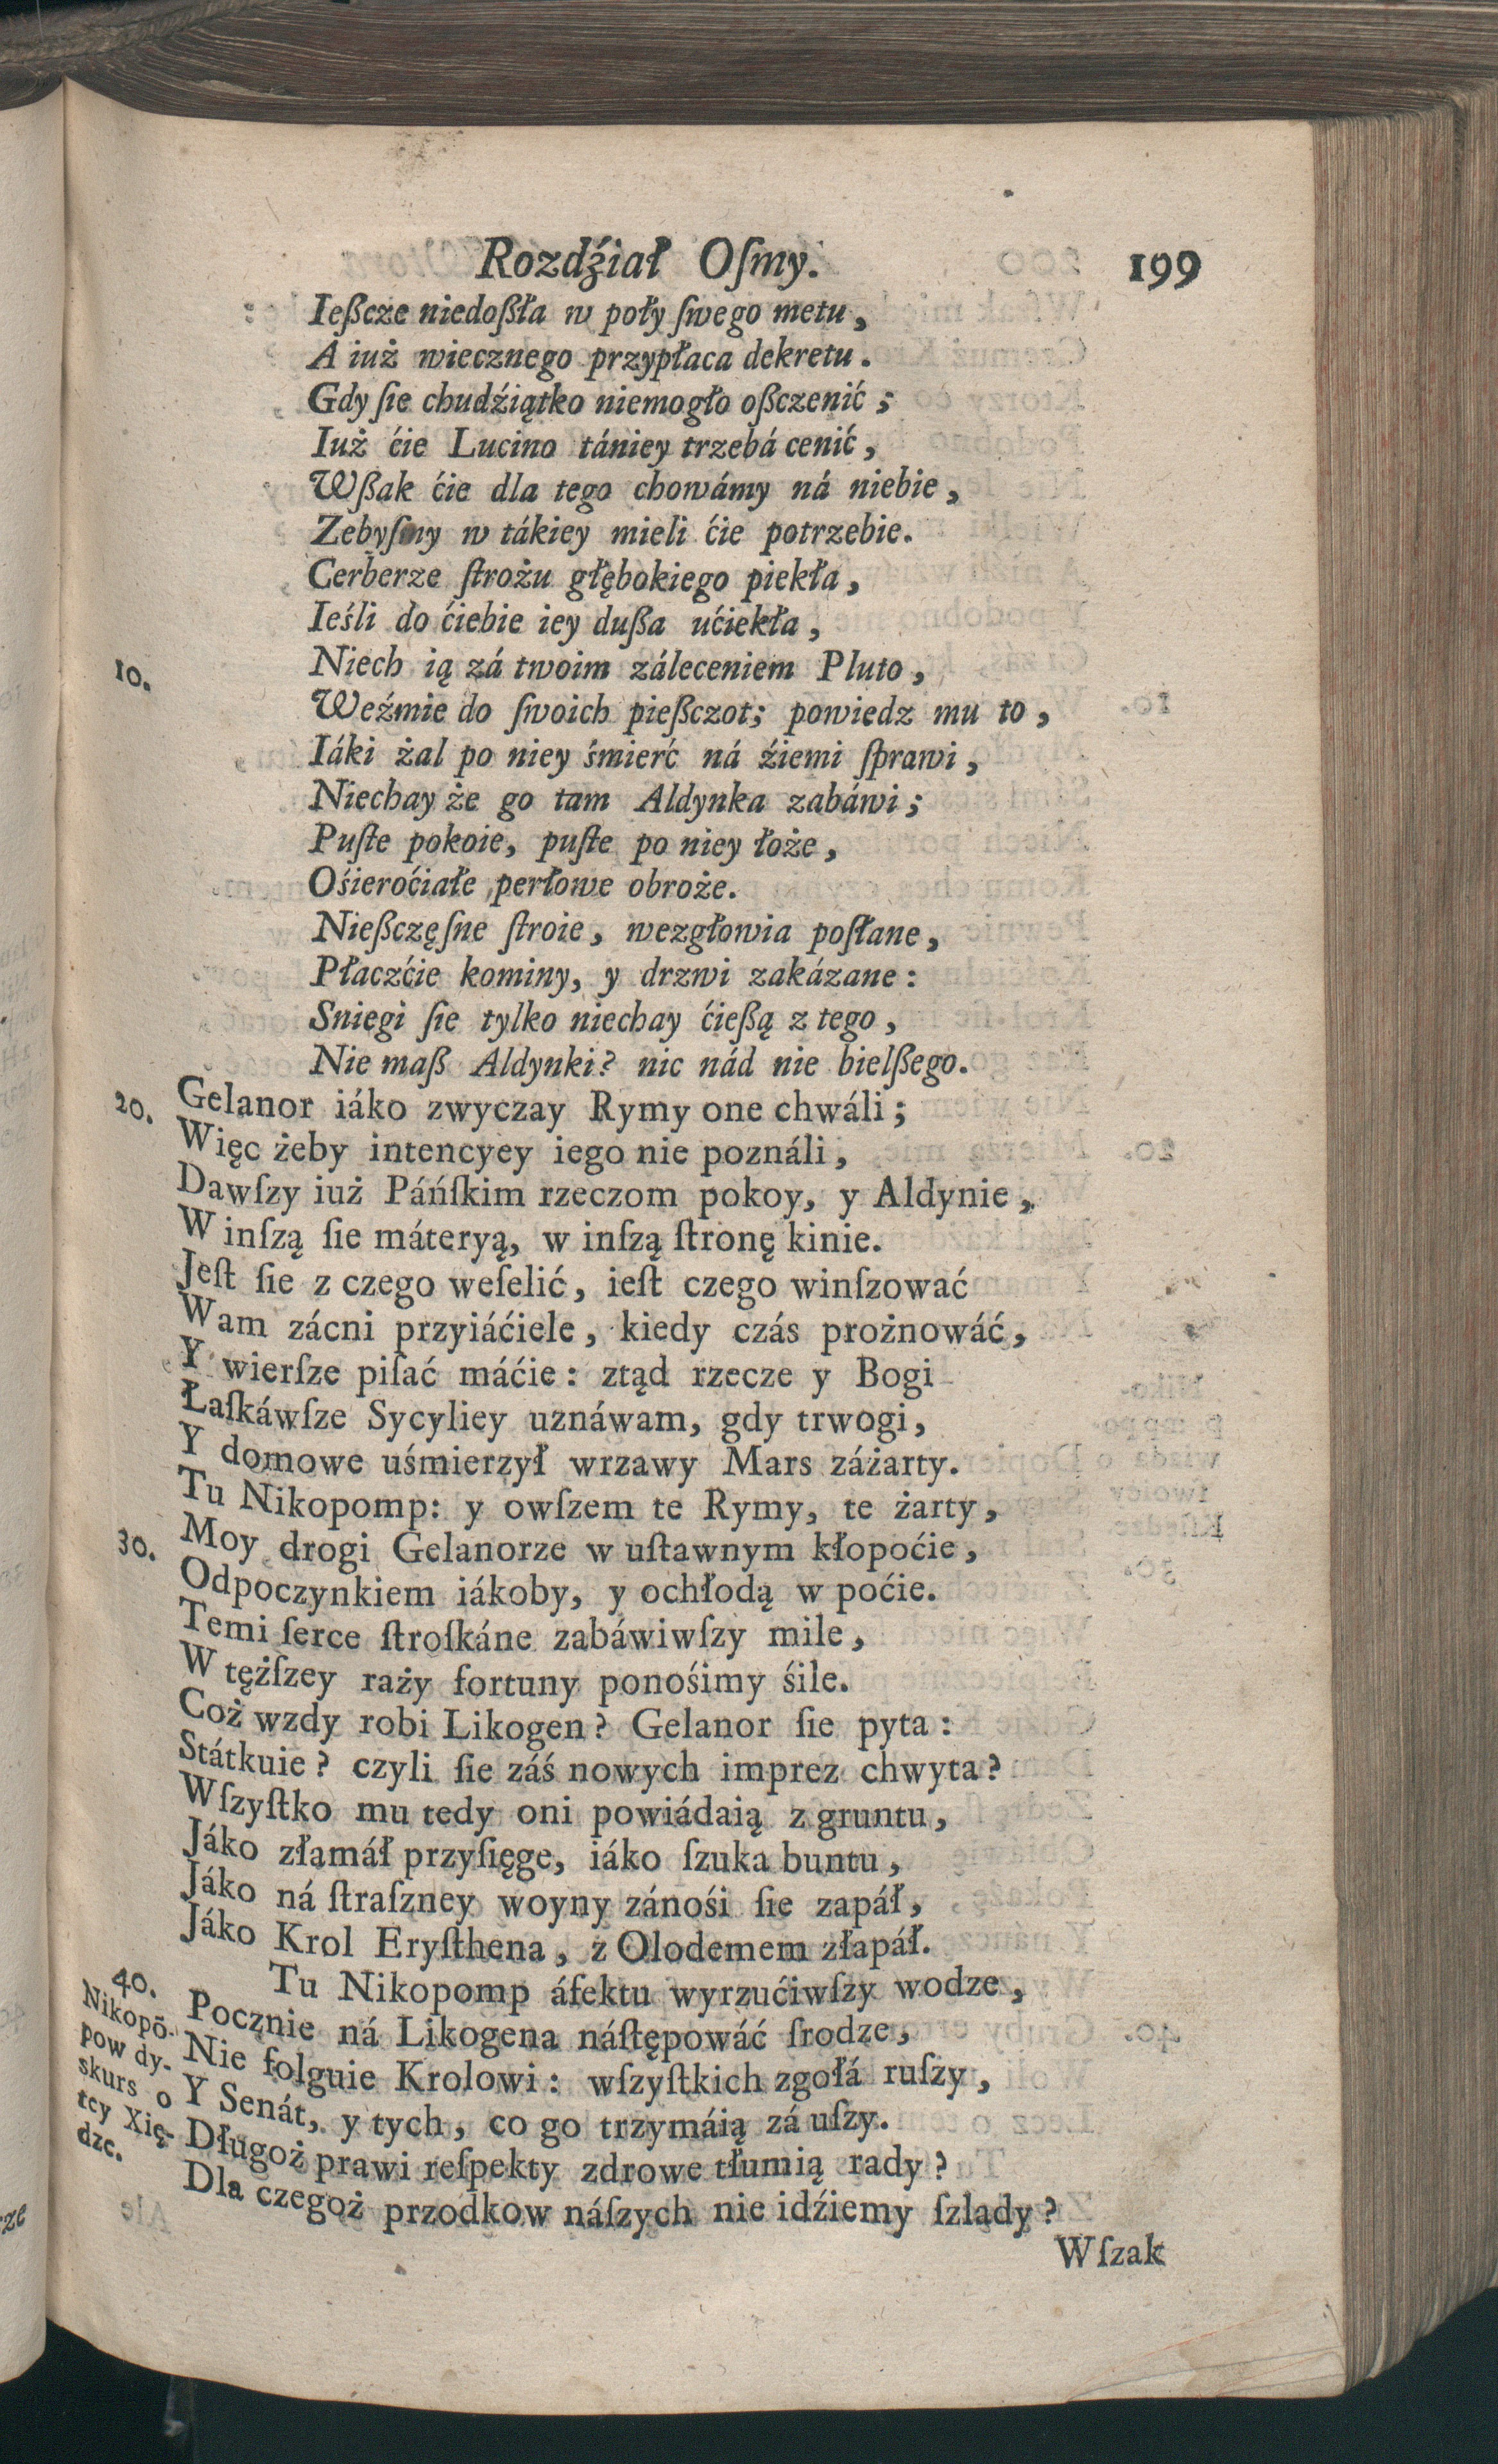 Rozdźiał Oſmy. 199
Ießcze niedoßła w poły ſwego metu,
A iuż wiecznego przypłaca dekretu.
Gdy ſie chudźiątko niemogło oßczenić;
Iuż ćie Lucino tániey trzebá cenić,
Wßak ćie dla tego chowámy ná niebie,
Zebyſmy w tákiey mieli ćie potrzebie.
Cerberze ſtrożu głębokiego piekła,
Ieśli do ćiebie iey dußa ućiekła,
10. Niech ią zá twoim záleceniem Pluto,
Weźmie do ſwoich pießczot; powiedz mu to,
Iáki żal po niey śmierć ná źiemi ſprawi,
Niechay że go tam Aldynka zabáwi;
Puſte pokoie, puſte po niey łoże,
Ośieroćiałe perłowe obroże.
Nießczęſne ſtroie, wezgłowia poſłane,
Płaczćie kominy, y drzwi zakázane:
Sniegi ſie tylko niechay ćießą z tego,
Nie maß Aldynki? nic nád nie bielßego.
20. Gelanor iáko zwyczay Rymy one chwáli;
Więc żeby intencyey iego nie poználi,
Dawſzy iuż Páńſkim rzeczom pokoy, y Aldynie,
W inſzą ſie máteryą, w inſzą ſtronę kinie.
Jeſt ſie z czego weſelić, ieſt czego winſzować
Wam zácni przyiáćiele, kiedy czás prożnowáć,
Y wierſze piſać máćie: ztąd rzecze y Bogi
Łaſkáwſze Sycyliey uznáwam, gdy trwogi,
Y domowe uśmierzył wrzawy Mars záżarty.
Tu Nikopomp: y owſzem te Rymy, te żarty,
30. Moy drogi Gelanorze w uſtawnym kłopoćie,
Odpoczynkiem iákoby, y ochłodą w poćie.
Temi ſerce ſtroſkáne zabáwiwſzy mile,
W tężſzey raży fortuny ponośimy śile.
Coż wzdy robi Likogen? Gelanor ſie pyta:
Státkuie? czyli ſie záś nowych imprez chwyta?
Wſzyſtko mu tedy oni powiádaią z gruntu,
Jáko złamáł przyſięge, iáko ſzuka buntu,
Jáko ná ſtraſzney woyny zánośi ſie zapáł,
Jáko Krol Eryſthena, z Olodemem złapáł.
40. Tu Nikopomp áfektu wyrzućiwſzy wodze,
Nikopō-
pow dy-
skurs o
tey Xię-
dze.
Pocznie ná Likogena náſtępowáć ſrodze,
Nie folguie Krolowi: wſzyſtkich zgołá ruſzy,
Y Senát, y tych, co go trzymáią zá uſzy.
Długoż prawi reſpekty zdrowe tłumią rady?
Dla czegoż przodkow náſzych nie idźiemy ſzlady?
Wſzak